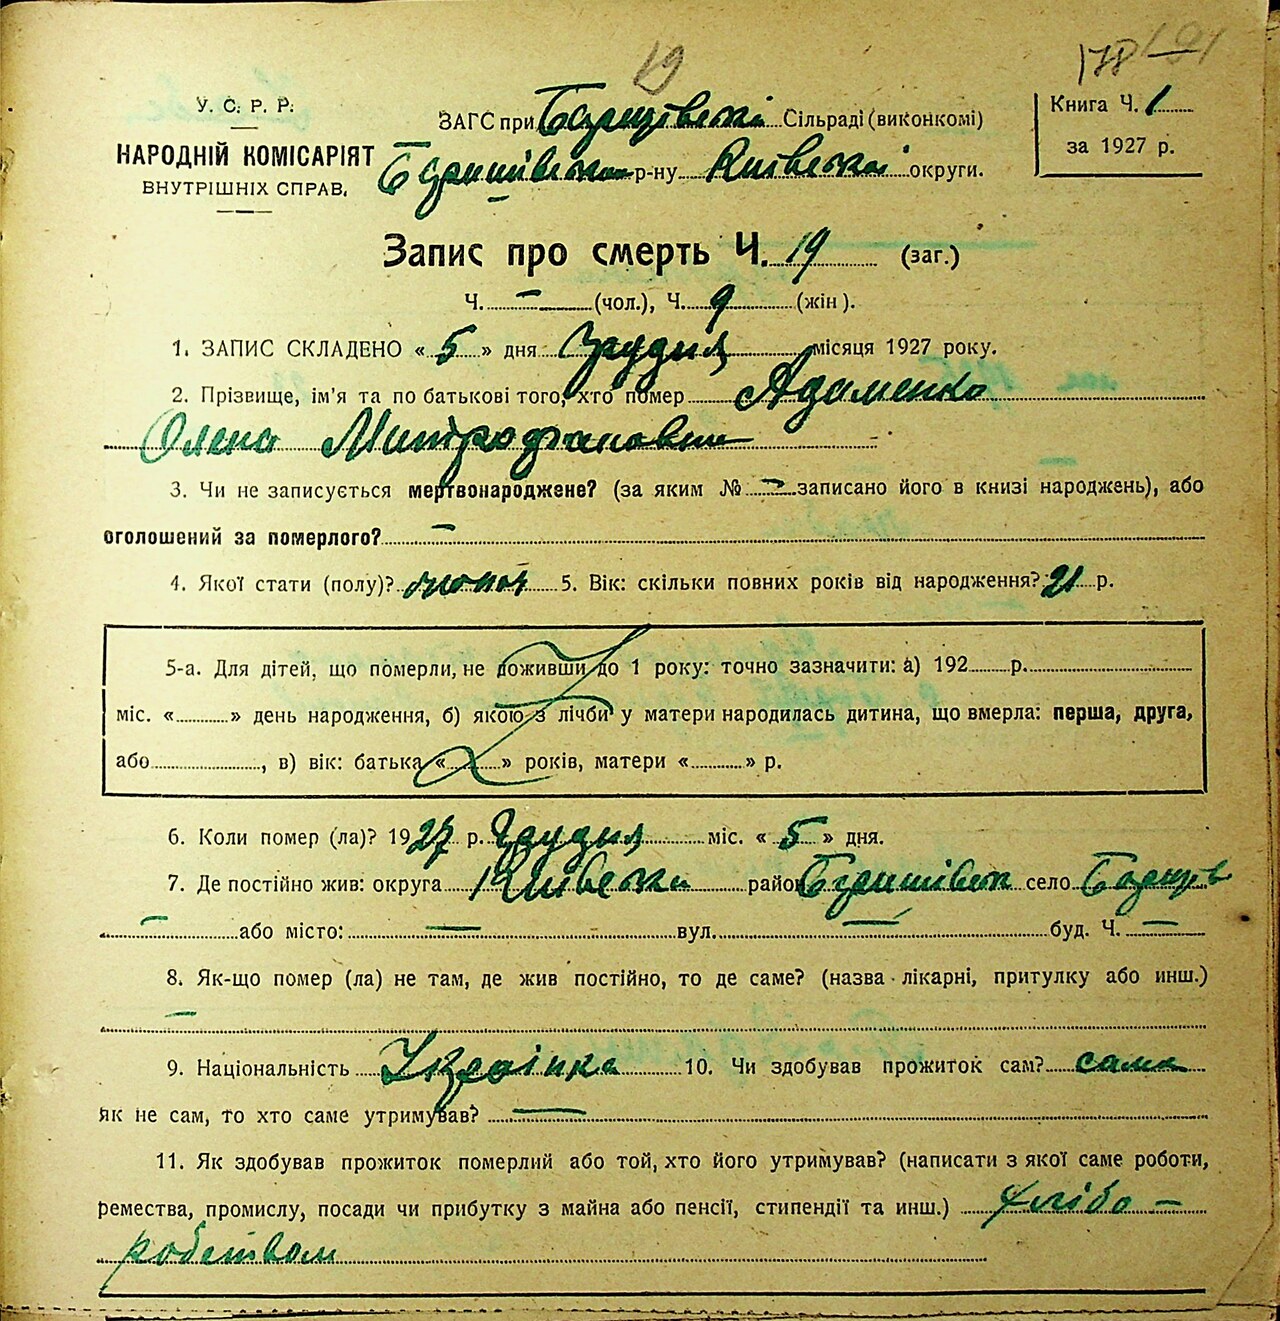 19
178
У. С. Р. Р.
НАРОДНІЙ КОМІСАРІЯТ
ВНУТРІШНІХ СПРАВ.
ЗАГС при Борщівській Сільраді (виконкомі)
Баришівського р-ну Київської округи.
Книга Ч. 1
за 1927 р.
Запис про смерть Ч. 19 (заг.)
Ч. — (чол.), Ч. 9 (жін).
1. ЗАПИС СКЛАДЕНО « 5 » дня Грудня місяця 1927 року.
2. Прізвище, ім'я та по батькові того, хто помер Адаменко
Олена Митрофановна
3. Чи не записується мертвонароджене? (за яким № — записано його в книзі народжень), або
оголошений за померлого? —
4. Якої стати (полу)? жіночої 5. Вік: скільки повних років від народження? 21 р.
5-а. Для дітей, що померли, не доживши до 1 року: точно зазначити: а) 192 р.
міс. « » день народження, б) якою з лічби у матери народилась дитина, що вмерла: перша, друга,
або , в) вік: батька « » років, матери « » р.
6. Коли помер (ла)? 1927 р. Грудня міс. « 5 » дня.
7. Де постійно жив: округа Київська район Баришівськ село Борщів
— або місто: — вул. — буд. Ч. —
8. Як-що помер (ла) не там, де жив постійно, то де саме? (назва лікарні, притулку або инш.)
—
9. Національність Українка 10. Чи здобував прожиток сам? сама
Як не сам, то хто саме утримував? —
11. Як здобував прожиток померлий або той, хто його утримував? (написати з якої саме роботи,
ремества, промислу, посади чи прибутку з майна або пенсії, стипендії та инш.) хлібо-
робством